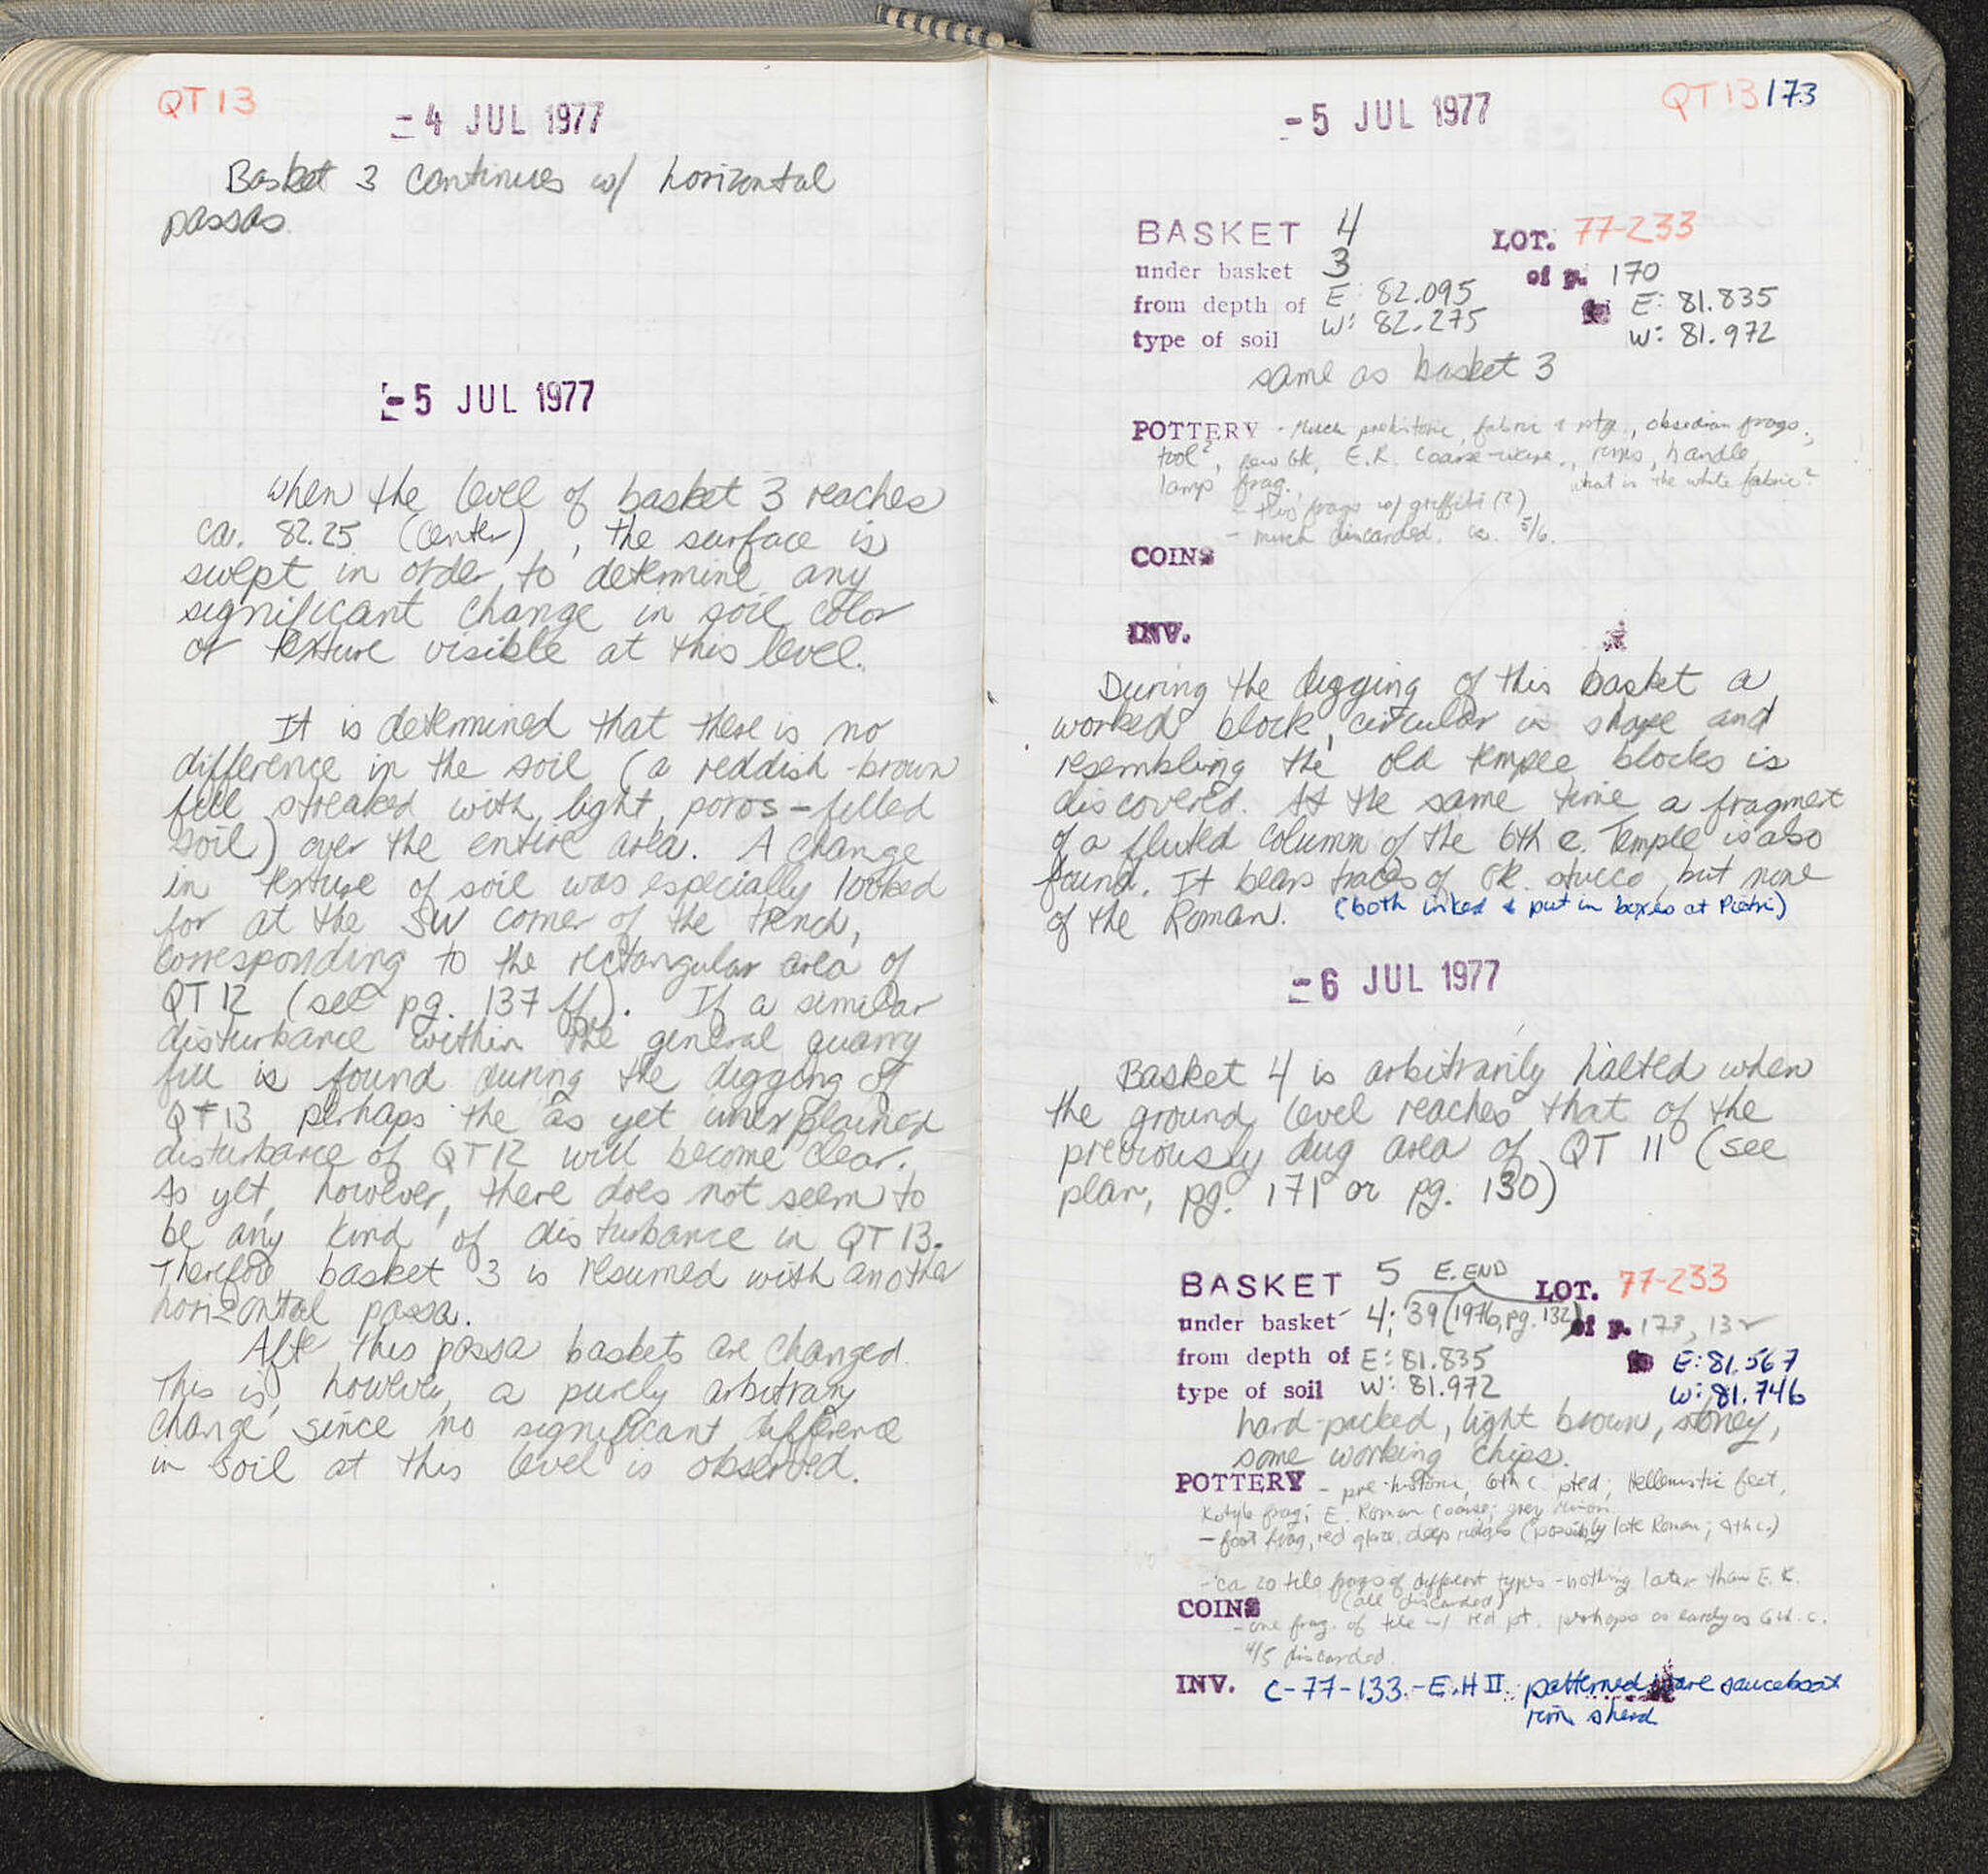 QT 13
-4 JUL 1977
Basket 3 continues w/ horizontal
passas.
-5 JUL 1977
When the level of basket 3 reaches
ca. 82.25 (center), the surface is
swept in order to determine any
significant change in soil color
or texture visible at this level.
It is determined that there is no
difference in the soil (a reddish-brown
fill streaked with light, poros-filled
soil) over the entire area. A change
in texture of soil was especially looked
for at the SW corner of the trench,
corresponding to the rectangular area of
QT12 (see pg. 137 ff). If a similar
disturbance within the general quarry
fill is found during the digging of
QT13 perhaps the as yet unexplained
disturbance of QT12 will become clear.
As yet, however, there does not seem to
be any kind of disturbance in QT 13.
Therefore basket 3 is resumed with another
horizontal passa.
After this passa baskets are changed.
This is, however, a purely arbitrary
change since no significant difference
in soil at this level is observed.
-5 JUL 1977
QT 13 173
BASKET 4 LOT. 77-233
under basket 3 of p. 170
from depth of E: 82.095 E: 81.835
W: 82.275 W: 81.972
type of soil
same as basket 3
POTTERY - Much prehistoric, fabric & ptg., obsidian frags.,
tool?, few Gk, E.R. coarse-ware, rims, handle,
lamp frag. what is the white fabric?
- two frags w/ graffiti (?)
- much discarded. ca. 5/6.
COINS
INV.
During the digging of this basket a
worked block, circular in shape, and
resembling the old temple blocks is
discovered. At the same time a fragment
of a fluted column of the 6th c. Temple is also
found. It bears traces of GK. stucco, but none
of the Roman. (both inked & put in boxes at Pietri)
-6 JUL 1977
Basket 4 is arbitrarily halted when
the ground level reaches that of the
previously dug area of QT 11 (see
plan, pg. 171 or pg. 130)
BASKET 5 E. END LOT. 77-233
under basket 4; 39 (1976, pg. 132) of p. 173, 132
from depth of E: 81.835 E: 81.567
type of soil W: 81.972 W: 81.746
hard-packed, light brown, stoney,
some working chips.
POTTERY - pre-historic, 6th c. pted; Hellenistic feet,
Kotyle frag; E. Roman coarse; grey Minoan
- foot frag, red glaze, deep ridges (possibly late Roman; 4th c.)
- ca 20 tile frags of different types - nothing later than E.R.
(all discarded)
COINS
- one frag. of tile w/ red pt. perhaps as early as 6th. c.
4/5 discarded.
INV. C-77-133.-E.H II patterned ware sauceboat
rim sherd